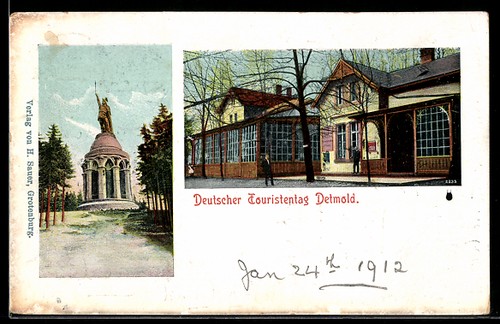 Verlag von H. Sauer, Grotenburg.
Deutscher Touristentag Detmold.
Jan 24th 1912